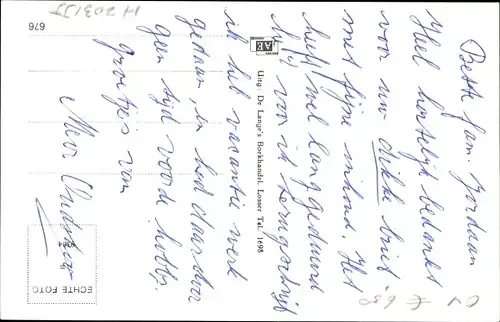 Beste fam. Jordaan
Heel hartelijk bedankt
voor uw dikke brief
met fijne inhoud. Het
heeft wel lang geduurd
voor ik terugschrijf
ik heb vacantie werk
gedaan, en had daardoor
geen tijd voor de hobby.
groetjes van
Mevr.
Uitg: De Lange's Boekhandel, Losser Tel. 1693
ECHTE FOTO
676
H 203155
€ 6,50